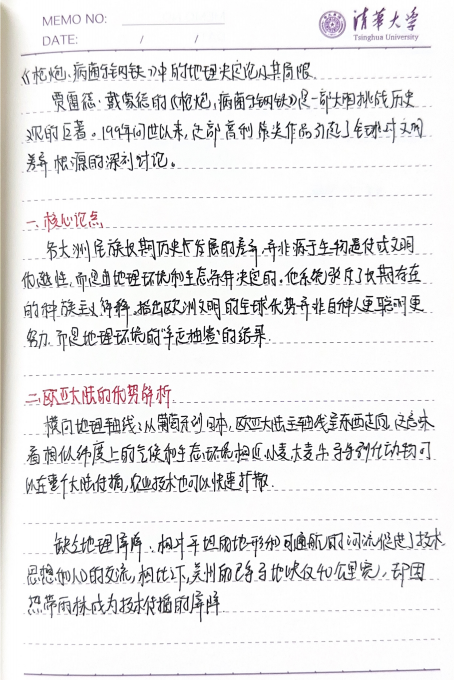 MEMO NO:
DATE: / /
清华大学
Tsinghua University
《枪炮、病菌与钢铁》中的地理决定论及其局限
贾雷德·戴蒙德的《枪炮,病菌与钢铁》是一部大胆挑战历史
观的巨著。1997年问世以来,这部普利策奖作品引起了全球对文明
差异根源的深刻讨论。
一、核心论点
各大洲民族长期历史发展的差异,并非源于生物遗传或文明
优越性,而是由地理环境和生态条件决定的,他系统驳斥了长期存在
的种族主义解释,指出欧洲文明的全球优势并非白种人更聪明更
努力,而是地理环境的"幸运抽奖"的结果.
二、欧亚大陆的优势解析
横向地理轴线:从葡萄牙到日本,欧亚大陆主轴线呈东西走向,这意味
着相似纬度上的气候和生态环境相近,小麦大麦牛马等驯化动物可
以在整个大陆传播,农业技术也可以快速扩散.
缺乏地理屏障:相对平坦的地形和可通航的河流促进了技术
思想和人口的交流,相比之下,美洲的巴拿马地峡仅40公里宽,却因
热带雨林成为技术传播的屏障